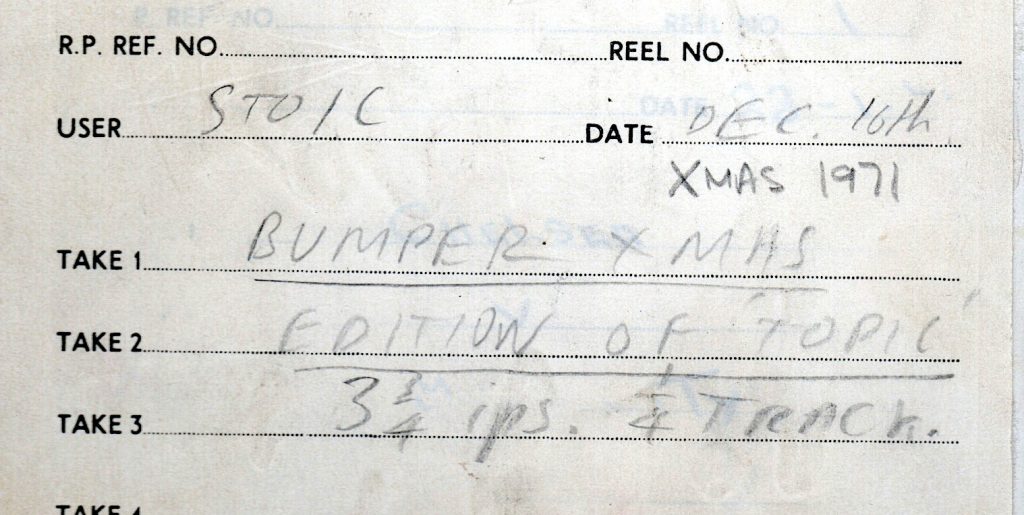 R.P. REF. NO. REEL NO.
USER STOIC DATE DEC. 16th
XMAS 1971
TAKE 1 BUMPER XMAS
TAKE 2 EDITION OF 'TOPIC'
TAKE 3 3 3/4 ips. 1/4 TRACK.
TAKE 4